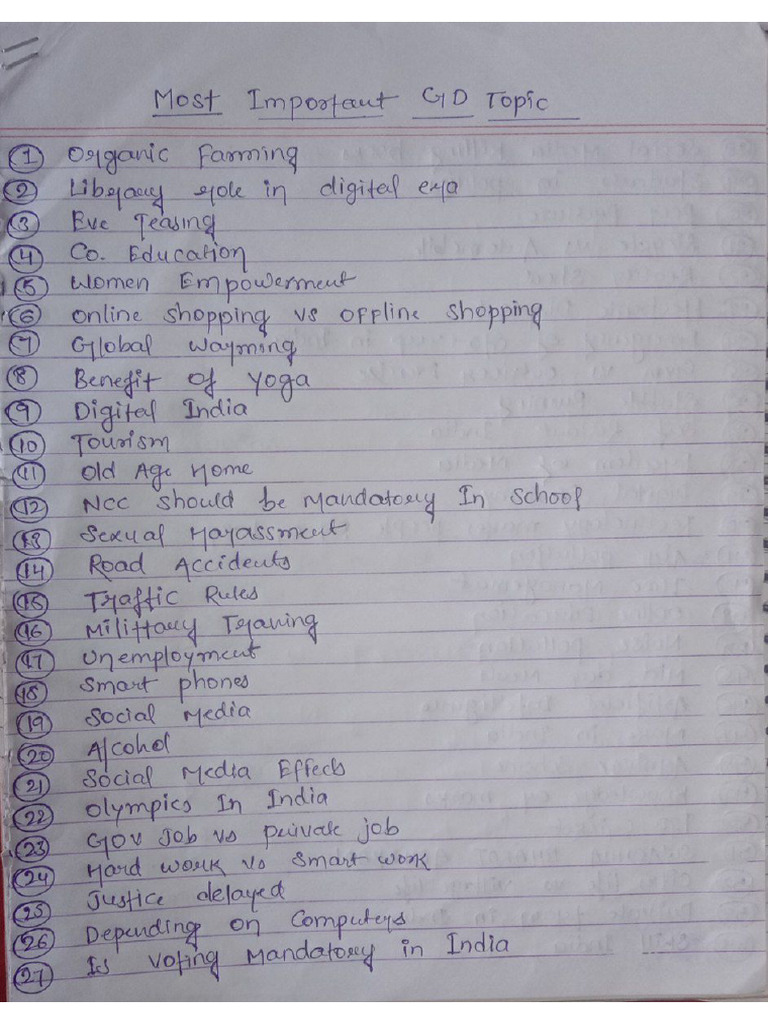 Most Important GD Topic
1 Organic Farming
2 Liberary role in digital era
3 Eve Teasing
4 Co. Education
5 Women Empowerment
6 Online Shopping vs Offline Shopping
7 Global Warming
8 Benefit of Yoga
9 Digital India
10 Tourism
11 Old Age Home
12 NCC should be Mandatory In School
13 Sexual Harassment
14 Road Accidents
15 Traffic Rules
16 Milittary Traning
17 Unemployment
18 Smart phones
19 Social Media
20 Alcohol
21 Social Media Effects
22 Olympics In India
23 Gov Job vs private job
24 Hard work vs Smart work
25 Justice delayed
26 Depending on Computers
27 Is voting Mandatory in India